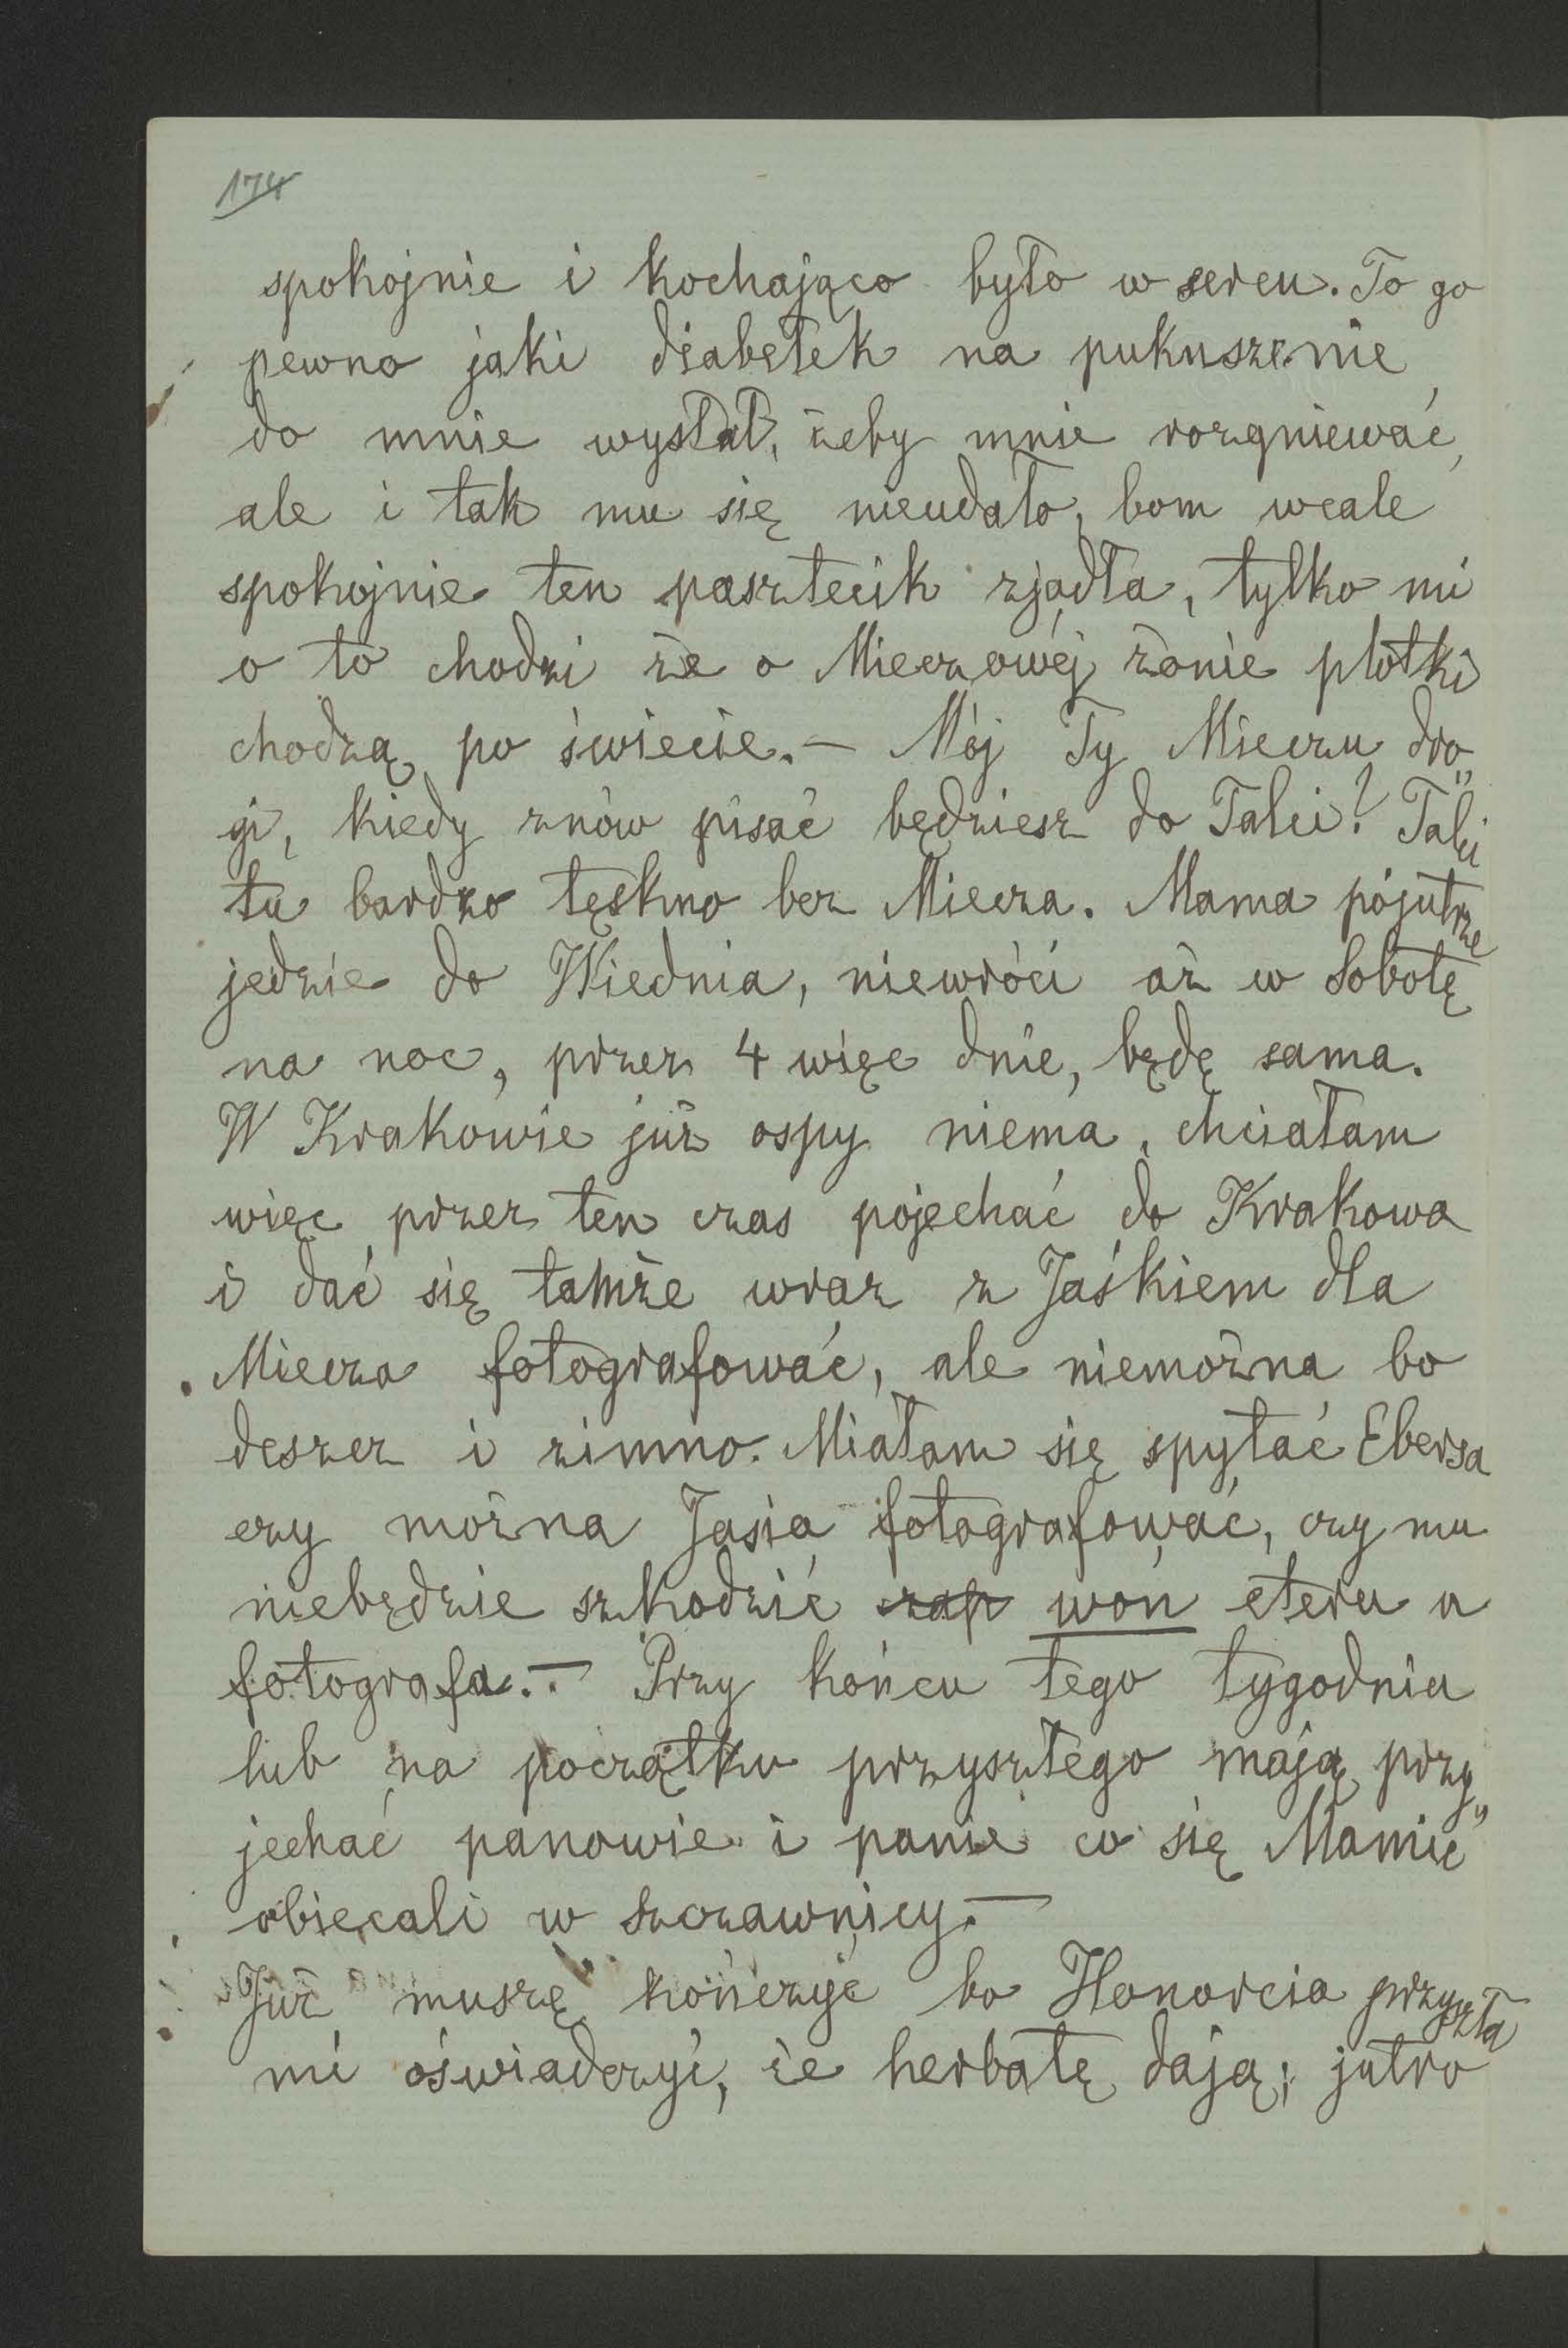 174
spokojnie i kochająco było w sercu. To go
pewno jaki djabełek na pukuszenie
do mnie wysłał, żeby mnie rozgniewać,
ale i tak mu się nieudało, bom wcale
spokojnie ten pasztecik zjadła, tylko mi
o to chodzi że o Mieczowéj żonie plotki
chodzą po świecie. — Mój Ty Mieczu dro„
gi, kiedy znów pisać będziesz do Talci? Talci
tu bardzo tęskno bez Miecza. Mama pojutrze
jedzie do Wiednia, niewróci aż w Sobotę
na noc, przez 4 więc dnie, będę sama.
W Krakowie już ospy niema, chciałam
więc przez ten czas pojechać do Krakowa
i dać się tamże wraz z Jaśkiem dla
Miecza fotografować, ale niemożna bo
deszcz i zimno. Miałam się spytać Ebersa
czy można Jasia fotografować, czy mu
niebędzie szkodzić zap woń eteru u
fotografa. — Przy końcu tego tygodnia
lub na początku przyszłego mają przy„
jechać panowie i panie co się Mamie
obiecali w Szczawnicy. —
Już muszę kończyć bo Honorcia przyszła
mi oświadczyć, że herbatę dają; jutro